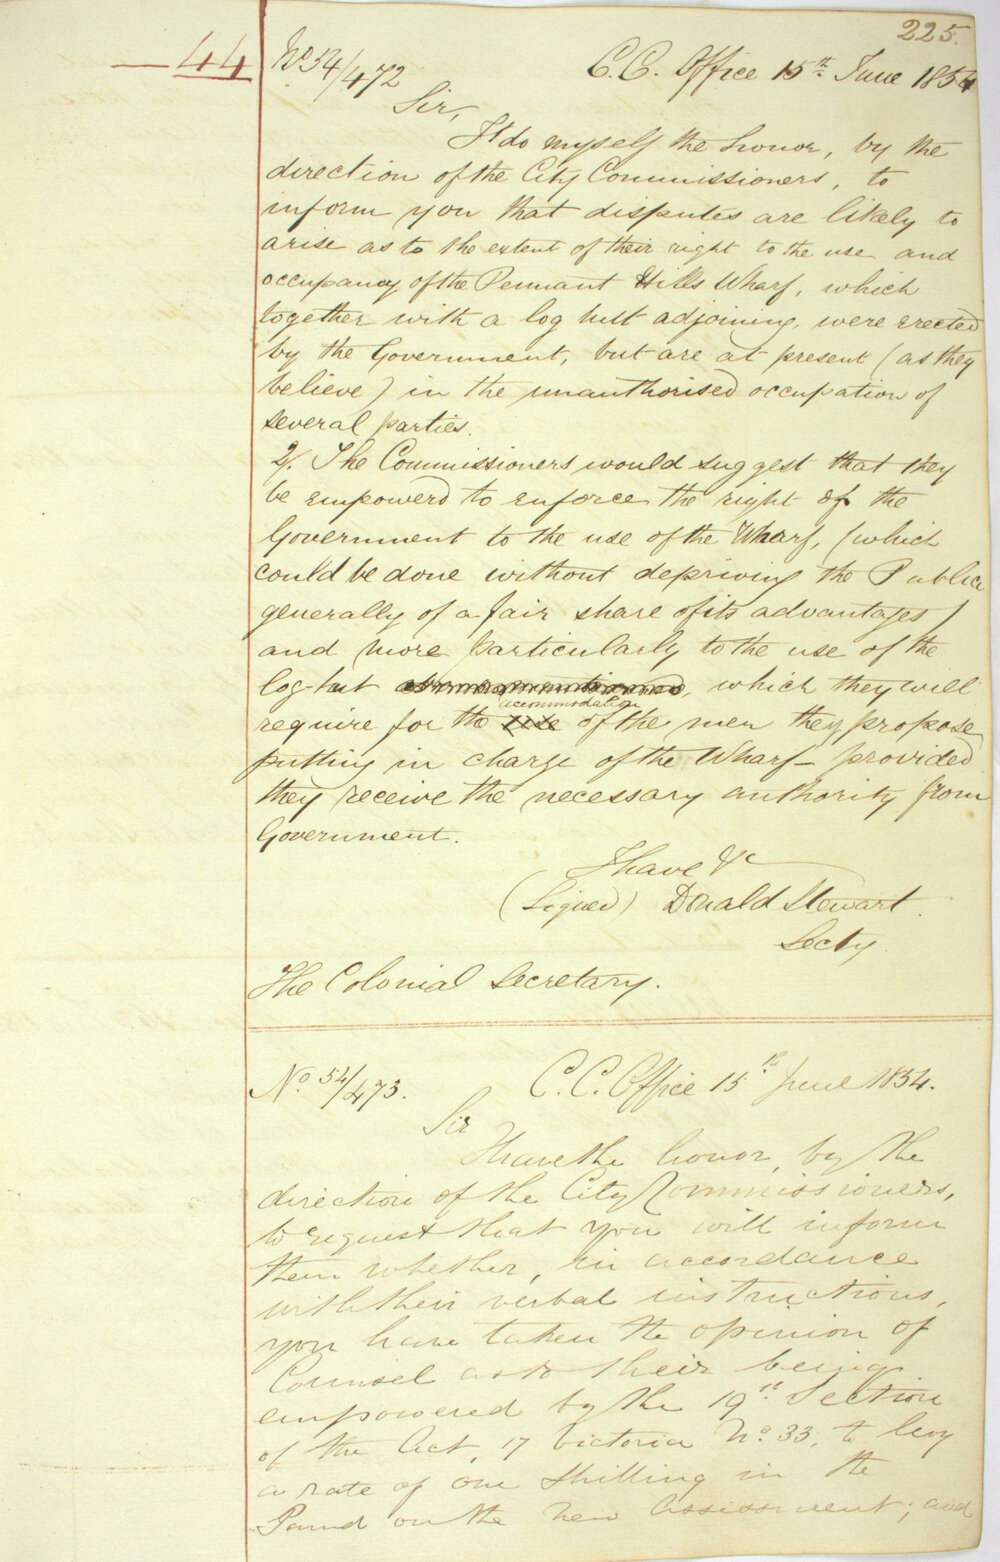 225.
44
No. 54/472
C.C. Office 15th June 1854
Sir,
I do myself the honor, by the
direction of the City Commissioners, to
inform you that disputes are likely to
arise as to the extent of their right to the use and
occupancy of the Pennant Hills Wharf, which
together with a log hutt adjoining, were erected
by the Government, but are at present (as they
believe) in the unauthorised occupation of
several parties.
2/. The Commissioners would suggest that they
be empowerd to enforce the right of the
Government to the use of the Wharf, (which
could be done without depriving the Public
generally of a fair share of its advantages)
and more particularly to the use of the
log-hut which they will
accommodation
require for the use of the men they propose
putting in charge of the Wharf – provided
they receive the necessary authority from
Government.
I have &c
(Signed) Donald Stewart.
Secty.
The Colonial Secretary.
No. 54/473.
C.C. Office 15th June 1854.
Sir
I have the honor, by the
direction of the City Commissioners,
to request that you will inform
them whether, in accordance
with their verbal instructions,
you have taken the opinion of
Counsel as to their being
empowered by the 19th Section
of the Act, 17 Victoria No. 33, to levy
a rate of One Shilling in the
Pound on the new Assessment; and